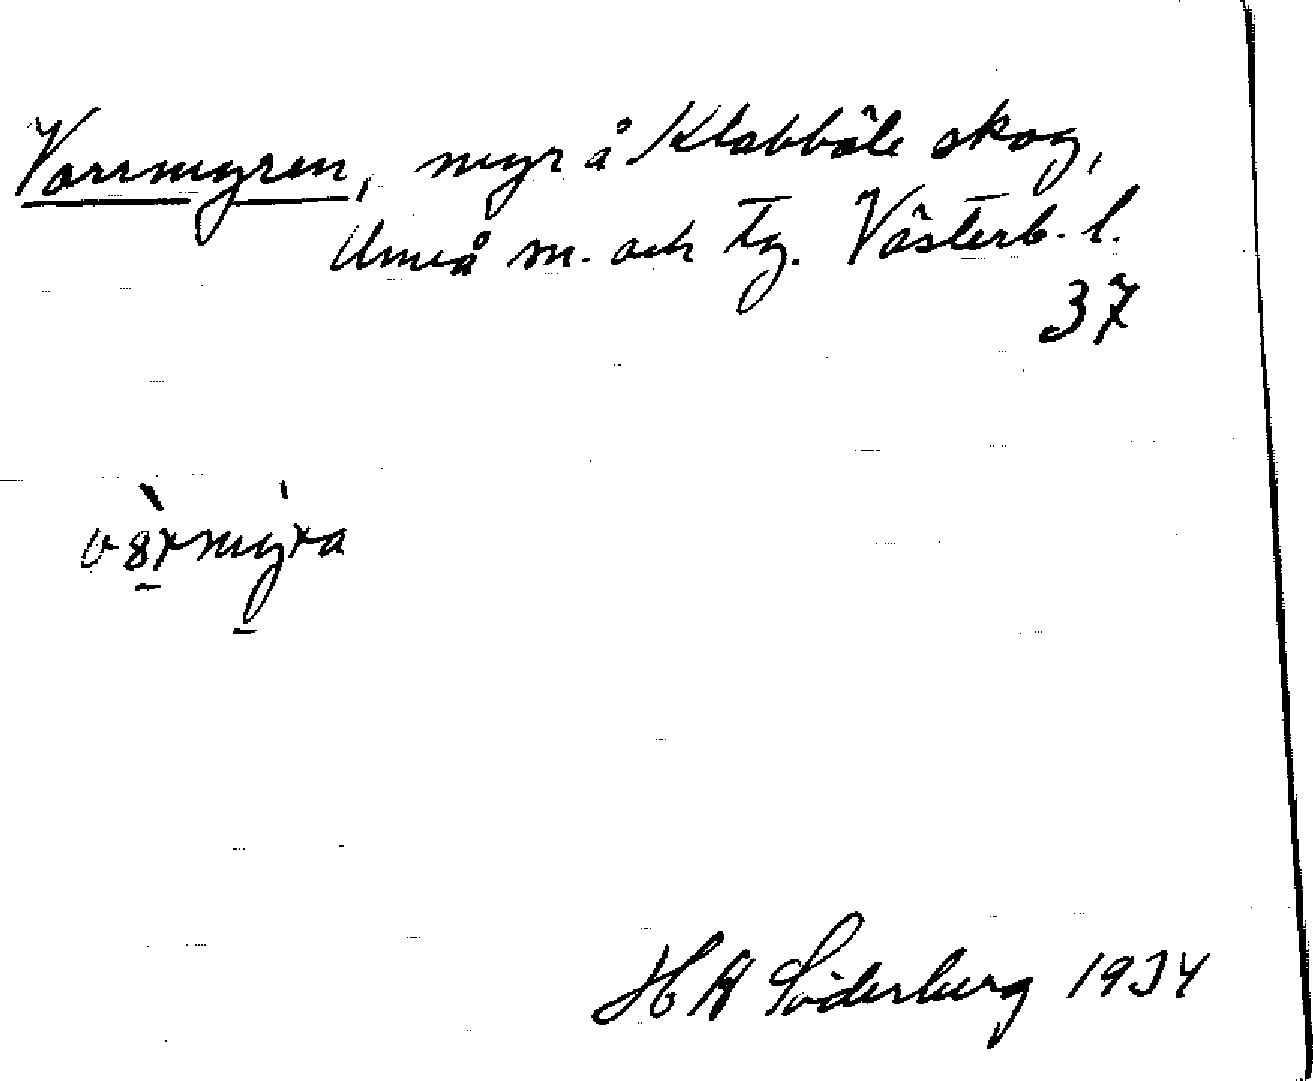 Varrmyren, myr å Klabböle skog,
Umeå sn. och tg. Västerb. l.
37
H W Söderberg 1934